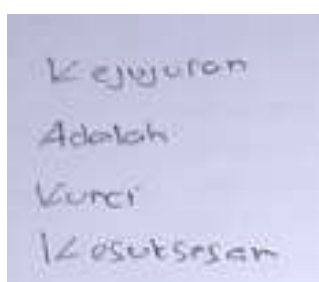 Kejujuran
Adalah
Kunci
Kesuksesan